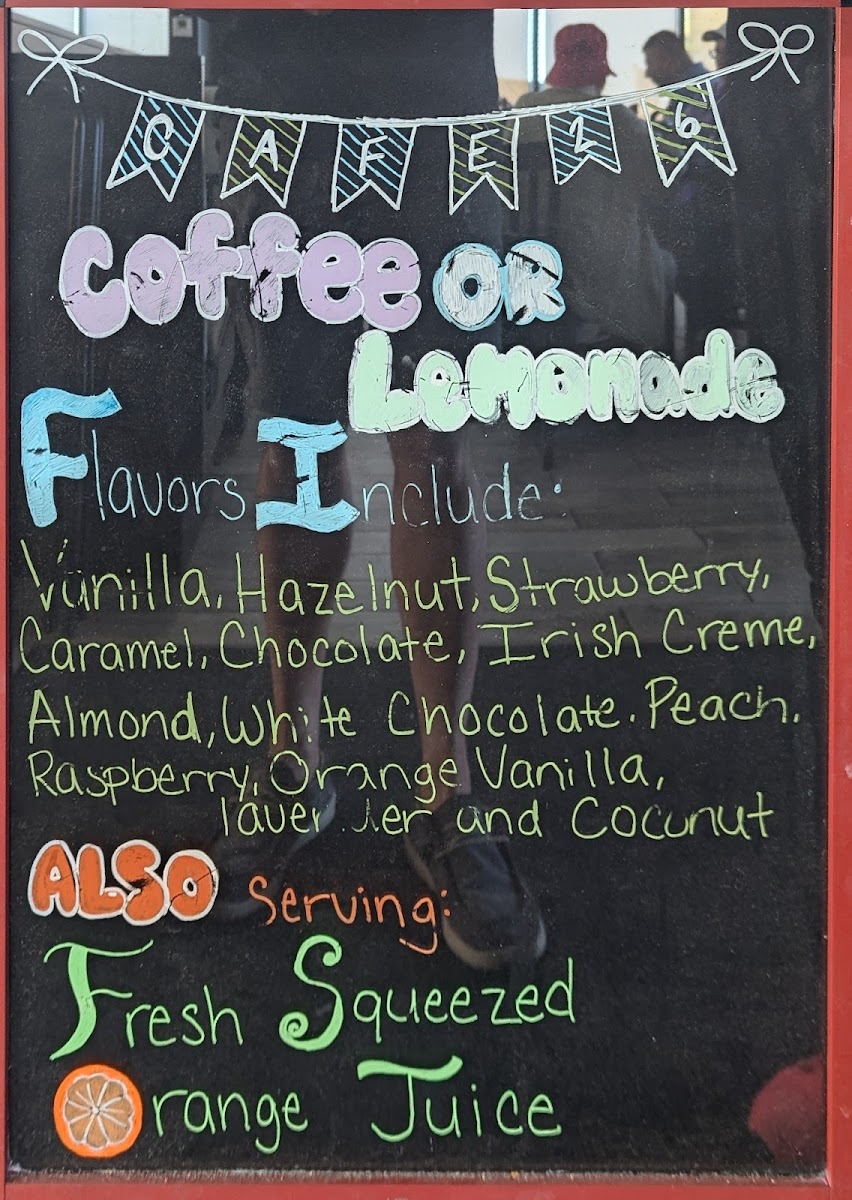 CAFE26
Coffee OR
Lemonade
Flavors Include:
Vanilla, Hazelnut, Strawberry,
Caramel, Chocolate, Irish Creme,
Almond, White Chocolate. Peach.
Raspberry, Orange Vanilla,
lavender and Coconut
ALSO Serving:
Fresh Squeezed
Orange Juice